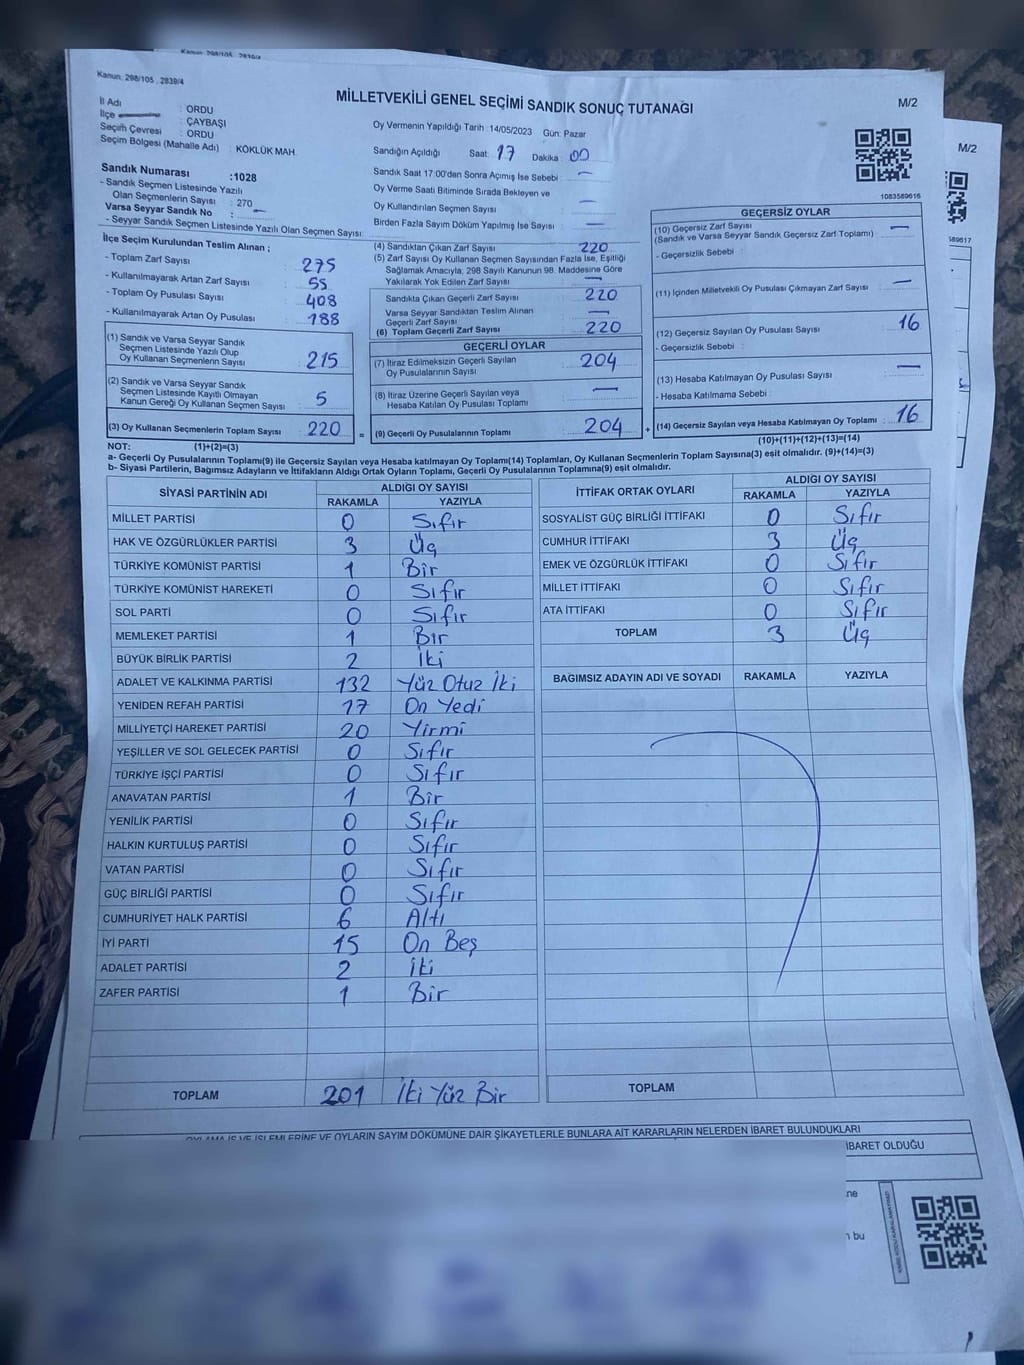 Kanun: 298/105 , 2839/4
MİLLETVEKİLİ GENEL SEÇİMİ SANDIK SONUÇ TUTANAĞI
M/2
İl Adı : ORDU
İlçe : ÇAYBAŞI
Seçim Çevresi : ORDU
Seçim Bölgesi (Mahalle Adı) : KÖKLÜK MAH.
Sandık Numarası :1028
- Sandık Seçmen Listesinde Yazılı
Olan Seçmenlerin Sayısı : 270
Varsa Seyyar Sandık No : —
- Seyyar Sandık Seçmen Listesinde Yazılı Olan Seçmen Sayısı:
Oy Vermenin Yapıldığı Tarih :14/05/2023 Gün: Pazar
Sandığın Açıldığı Saat: 17 Dakika : 00
Sandık Saat 17:00'den Sonra Açımış İse Sebebi : —
Oy Verme Saati Bitiminde Sırada Bekleyen ve
Oy Kullandırılan Seçmen Sayısı : —
Birden Fazla Sayım Döküm Yapılmış İse Sayısı : —
1083589616
M/2
İlçe Seçim Kurulundan Teslim Alınan ;
- Toplam Zarf Sayısı : 275
- Kullanılmayarak Artan Zarf Sayısı : 55
- Toplam Oy Pusulası Sayısı : 408
- Kullanılmayarak Artan Oy Pusulası : 188
(1) Sandık ve Varsa Seyyar Sandık
Seçmen Listesinde Yazılı Olup
Oy Kullanan Seçmenlerin Sayısı : 215
(2) Sandık ve Varsa Seyyar Sandık
Seçmen Listesinde Kayıtlı Olmayan
Kanun Gereği Oy Kullanan Seçmen Sayısı : 5
(3) Oy Kullanan Seçmenlerin Toplam Sayısı : 220
(4) Sandıktan Çıkan Zarf Sayısı : 220
(5) Zarf Sayısı Oy Kullanan Seçmen Sayısından Fazla İse, Eşitliği
Sağlamak Amacıyla, 298 Sayılı Kanunun 98. Maddesine Göre
Yakılarak Yok Edilen Zarf Sayısı : —
Sandıkta Çıkan Geçerli Zarf Sayısı : 220
Varsa Seyyar Sandıktan Teslim Alınan
Geçerli Zarf Sayısı : —
(6) Toplam Geçerli Zarf Sayısı : 220
GEÇERLİ OYLAR
(7) İtiraz Edilmeksizin Geçerli Sayılan
Oy Pusulalarının Sayısı : 204
(8) İtiraz Üzerine Geçerli Sayılan veya
Hesaba Katılan Oy Pusulası Toplamı : —
= (9) Geçerli Oy Pusulalarının Toplamı : 204
GEÇERSİZ OYLAR
(10) Geçersiz Zarf Sayısı : —
(Sandık ve Varsa Seyyar Sandık Geçersiz Zarf Toplamı)
- Geçersizlik Sebebi :
(11) İçinden Milletvekili Oy Pusulası Çıkmayan Zarf Sayısı : —
(12) Geçersiz Sayılan Oy Pusulası Sayısı : 16
- Geçersizlik Sebebi :
(13) Hesaba Katılmayan Oy Pusulası Sayısı : —
- Hesaba Katılmama Sebebi :
+ (14) Geçersiz Sayılan veya Hesaba Katılmayan Oy Toplamı : 16
NOT: (1)+(2)=(3) (10)+(11)+(12)+(13)=(14)
a- Geçerli Oy Pusulalarının Toplamı(9) ile Geçersiz Sayılan veya Hesaba katılmayan Oy Toplamı(14) Toplamları, Oy Kullanan Seçmenlerin Toplam Sayısına(3) eşit olmalıdır. (9)+(14)=(3)
b- Siyasi Partilerin, Bağımsız Adayların ve İttifakların Aldığı Ortak Oyların Toplamı, Geçerli Oy Pusulalarının Toplamına(9) eşit olmalıdır.
SİYASİ PARTİNİN ADI ALDIĞI OY SAYISI
RAKAMLA YAZIYLA
MİLLET PARTİSİ 0 Sıfır
HAK VE ÖZGÜRLÜKLER PARTİSİ 3 Üç
TÜRKİYE KOMÜNİST PARTİSİ 1 Bir
TÜRKİYE KOMÜNİST HAREKETİ 0 Sıfır
SOL PARTİ 0 Sıfır
MEMLEKET PARTİSİ 1 Bir
BÜYÜK BİRLİK PARTİSİ 2 İki
ADALET VE KALKINMA PARTİSİ 132 Yüz Otuz İki
YENİDEN REFAH PARTİSİ 17 On Yedi
MİLLİYETÇİ HAREKET PARTİSİ 20 Yirmi
YEŞİLLER VE SOL GELECEK PARTİSİ 0 Sıfır
TÜRKİYE İŞÇİ PARTİSİ 0 Sıfır
ANAVATAN PARTİSİ 1 Bir
YENİLİK PARTİSİ 0 Sıfır
HALKIN KURTULUŞ PARTİSİ 0 Sıfır
VATAN PARTİSİ 0 Sıfır
GÜÇ BİRLİĞİ PARTİSİ 0 Sıfır
CUMHURİYET HALK PARTİSİ 6 Altı
İYİ PARTİ 15 On Beş
ADALET PARTİSİ 2 İki
ZAFER PARTİSİ 1 Bir
TOPLAM 201 İki Yüz Bir
İTTİFAK ORTAK OYLARI ALDIĞI OY SAYISI
RAKAMLA YAZIYLA
SOSYALİST GÜÇ BİRLİĞİ İTTİFAKI 0 Sıfır
CUMHUR İTTİFAKI 3 Üç
EMEK VE ÖZGÜRLÜK İTTİFAKI 0 Sıfır
MİLLET İTTİFAKI 0 Sıfır
ATA İTTİFAKI 0 Sıfır
TOPLAM 3 Üç
BAĞIMSIZ ADAYIN ADI VE SOYADI RAKAMLA YAZIYLA
TOPLAM
OYLAMA İŞ VE İŞLEMLERİNE VE OYLARIN SAYIM DÖKÜMÜNE DAİR ŞİKAYETLERLE BUNLARA AİT KARARLARIN NELERDEN İBARET BULUNDUKLARI
İBARET OLDUĞU
ne
bu